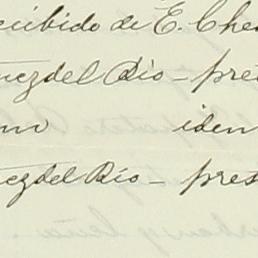 recibido de E. Che
nezdel Rio - pres
m iden
ezdel Rio - pres